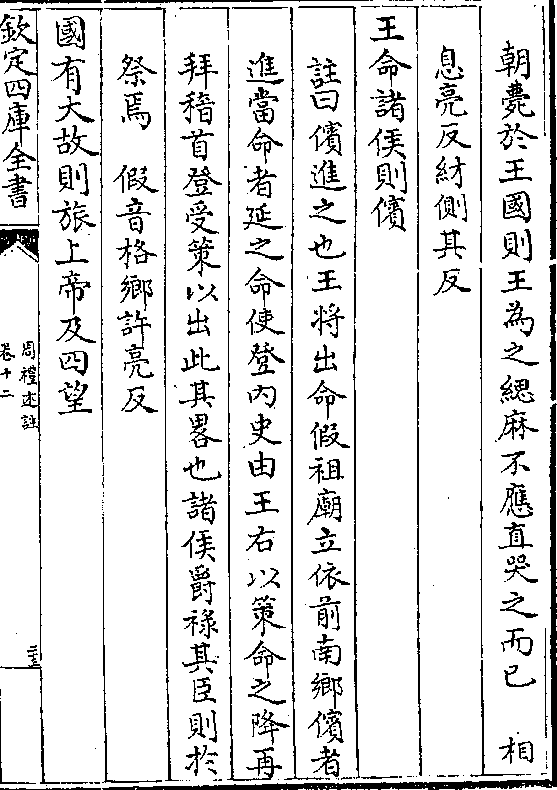 朝薨於王國則王為之緦麻不應直哭之而已　相
息亮反紂側其反
王命諸侯則儐
註曰儐進之也王將出命假祖廟立依前南鄉儐者
進當命者延之命使登內史由王右以策命之降再
拜稽首登受策以出此其畧也諸侯爵祿其臣則於
祭焉　假音格鄉許亮反
國有大故則旅上帝及四望
欽定四庫全書
周禮述註
卷十二